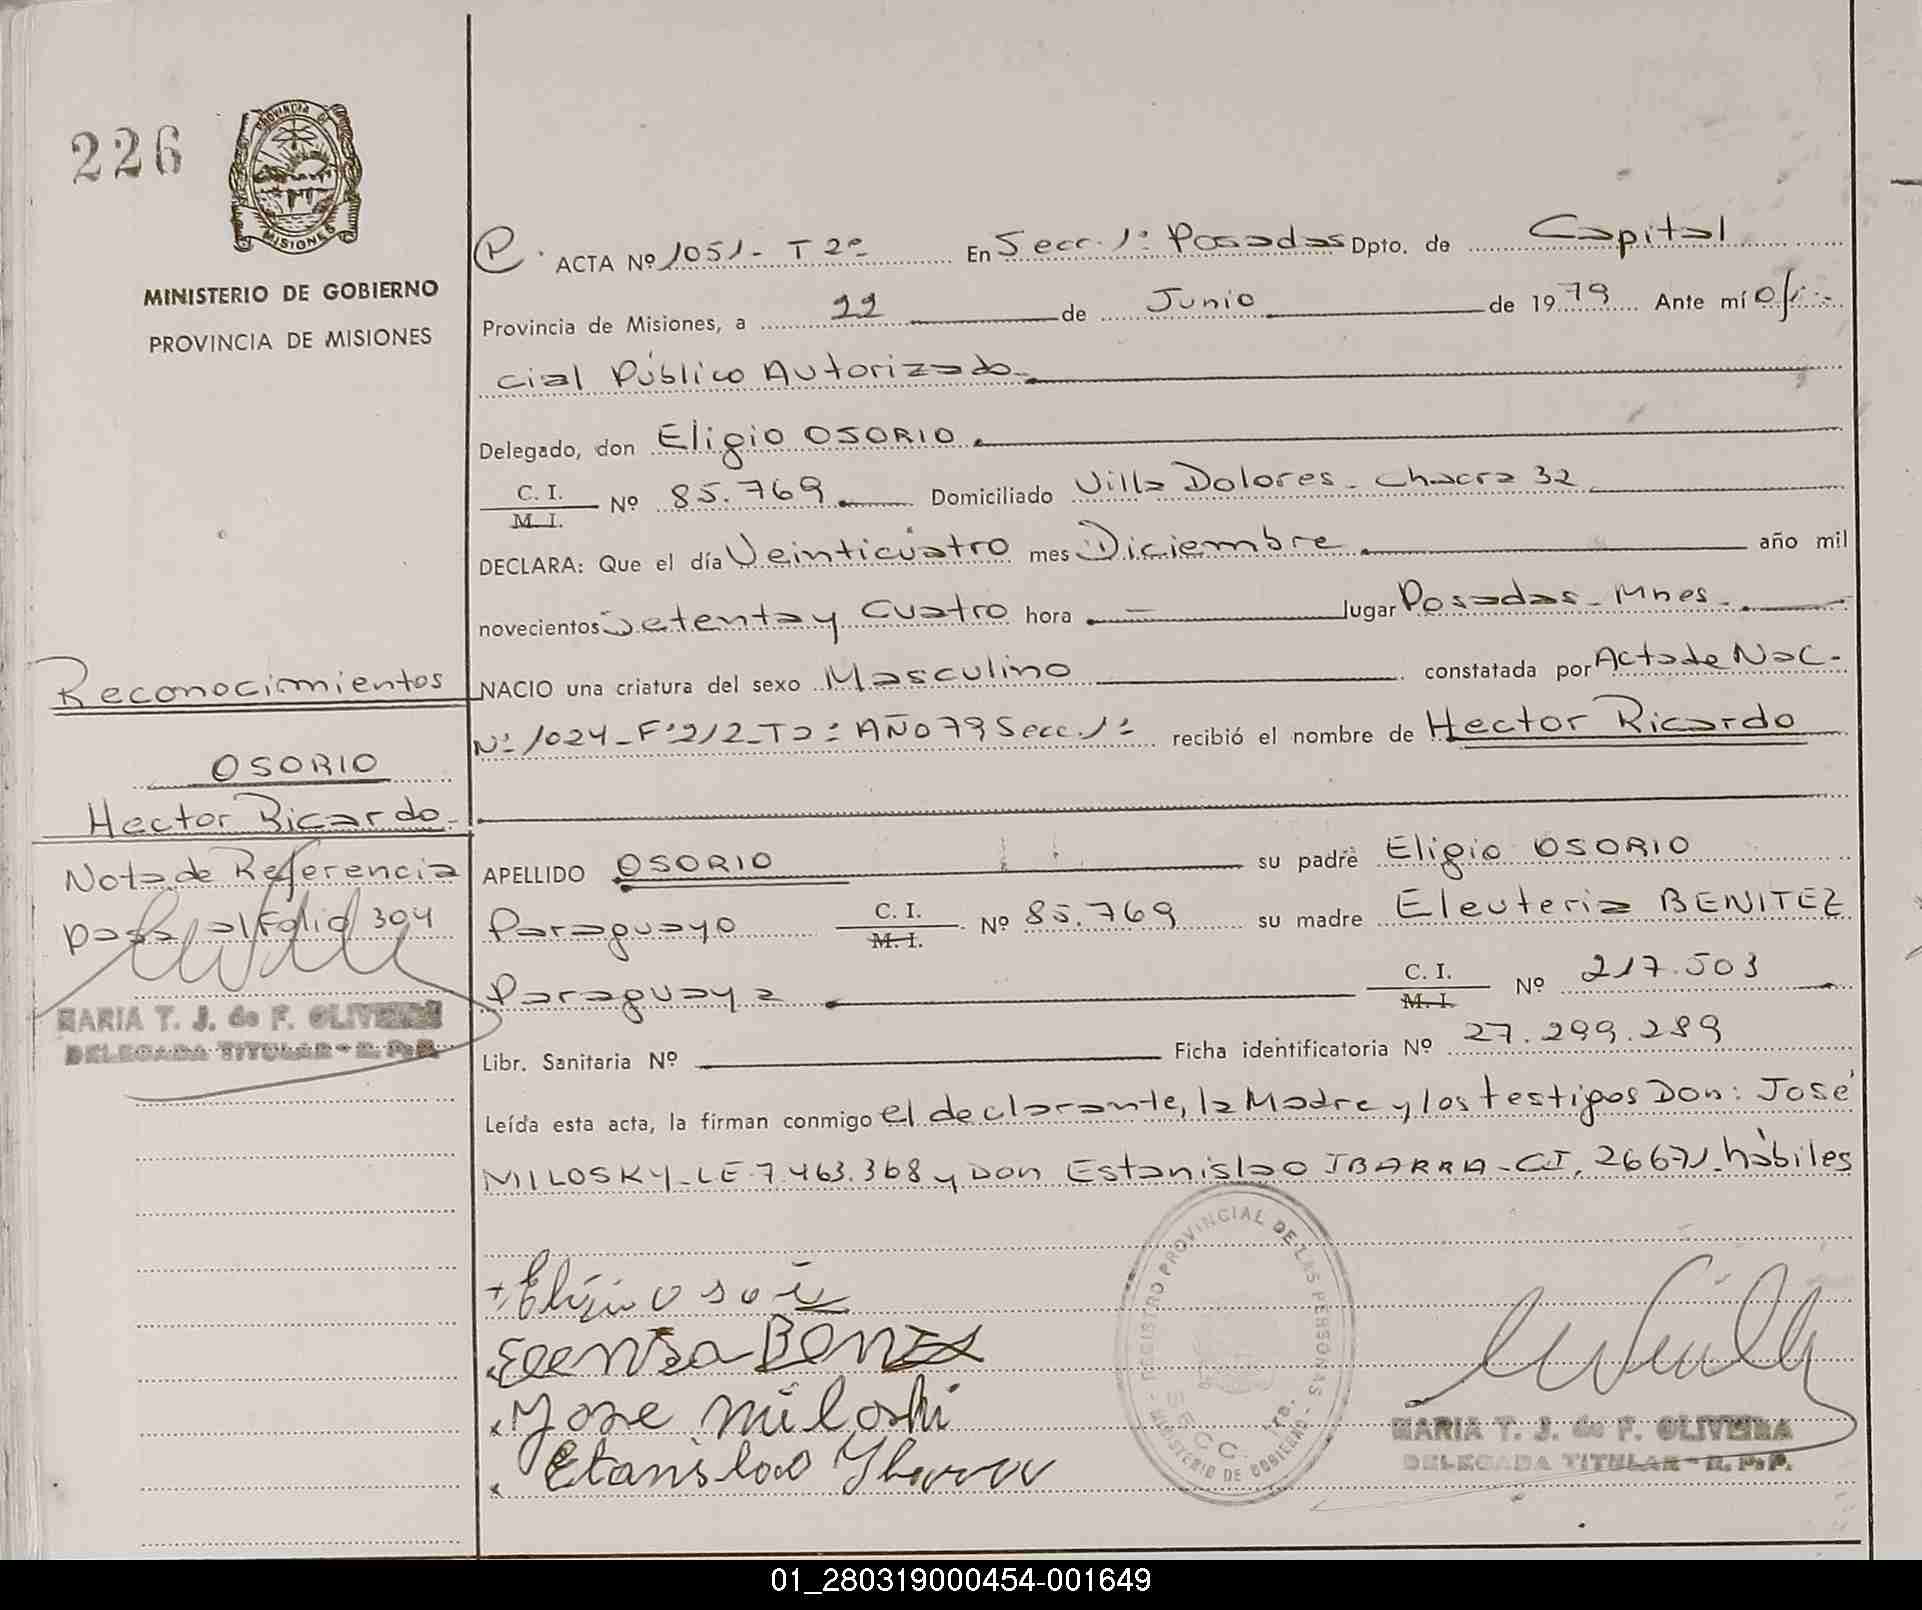 226
PROVINCIA DE
MISIONES
MINISTERIO DE GOBIERNO
PROVINCIA DE MISIONES
P. ACTA Nº 1051- T 2º En Secc. 1ª Posadas Dpto. de Capital
Provincia de Misiones, a 22 de Junio de 1979 Ante mí Ofi-
cial Público Autorizado
Delegado, don Eligio OSORIO
C. I. / M. I. Nº 85.769 Domiciliado Villa Dolores - Chacra 32
DECLARA: Que el día Veinticuatro mes Diciembre año mil
novecientos Setenta y Cuatro hora — lugar Posadas - Mnes.
NACIO una criatura del sexo Masculino constatada por Acta de Nac.
Nº 1024 - Fº 212 - Tº 2º AÑO 79 Secc. 1ª recibió el nombre de Hector Ricardo
APELLIDO OSORIO su padre Eligio OSORIO
Paraguayo C. I. / M. I. Nº 85.769 su madre Eleuteria BENITEZ
Paraguaya C. I. / M. I. Nº 217.503
Libr. Sanitaria Nº Ficha identificatoria Nº 27.299.289
Leída esta acta, la firman conmigo el declarante, la Madre y los testigos Don: José
MILOSKY - LE 7.463.368 y Don Estanislao IBARRA - CI. 26671 - hábiles
Reconocimientos
OSORIO
Hector Ricardo
Nota de Referencia
pasa al Folio 304
MARIA T. J. de F. OLIVEIRA
DELEGADA TITULAR - R. P. P.
Jose Miloski
Etanislao Ybarra
REGISTRO PROVINCIAL DE LAS PERSONAS
MINISTERIO DE GOBIERNO
SECC.
MARIA T. J. de F. OLIVEIRA
DELEGADA TITULAR - R. P. P.
01_280319000454-001649